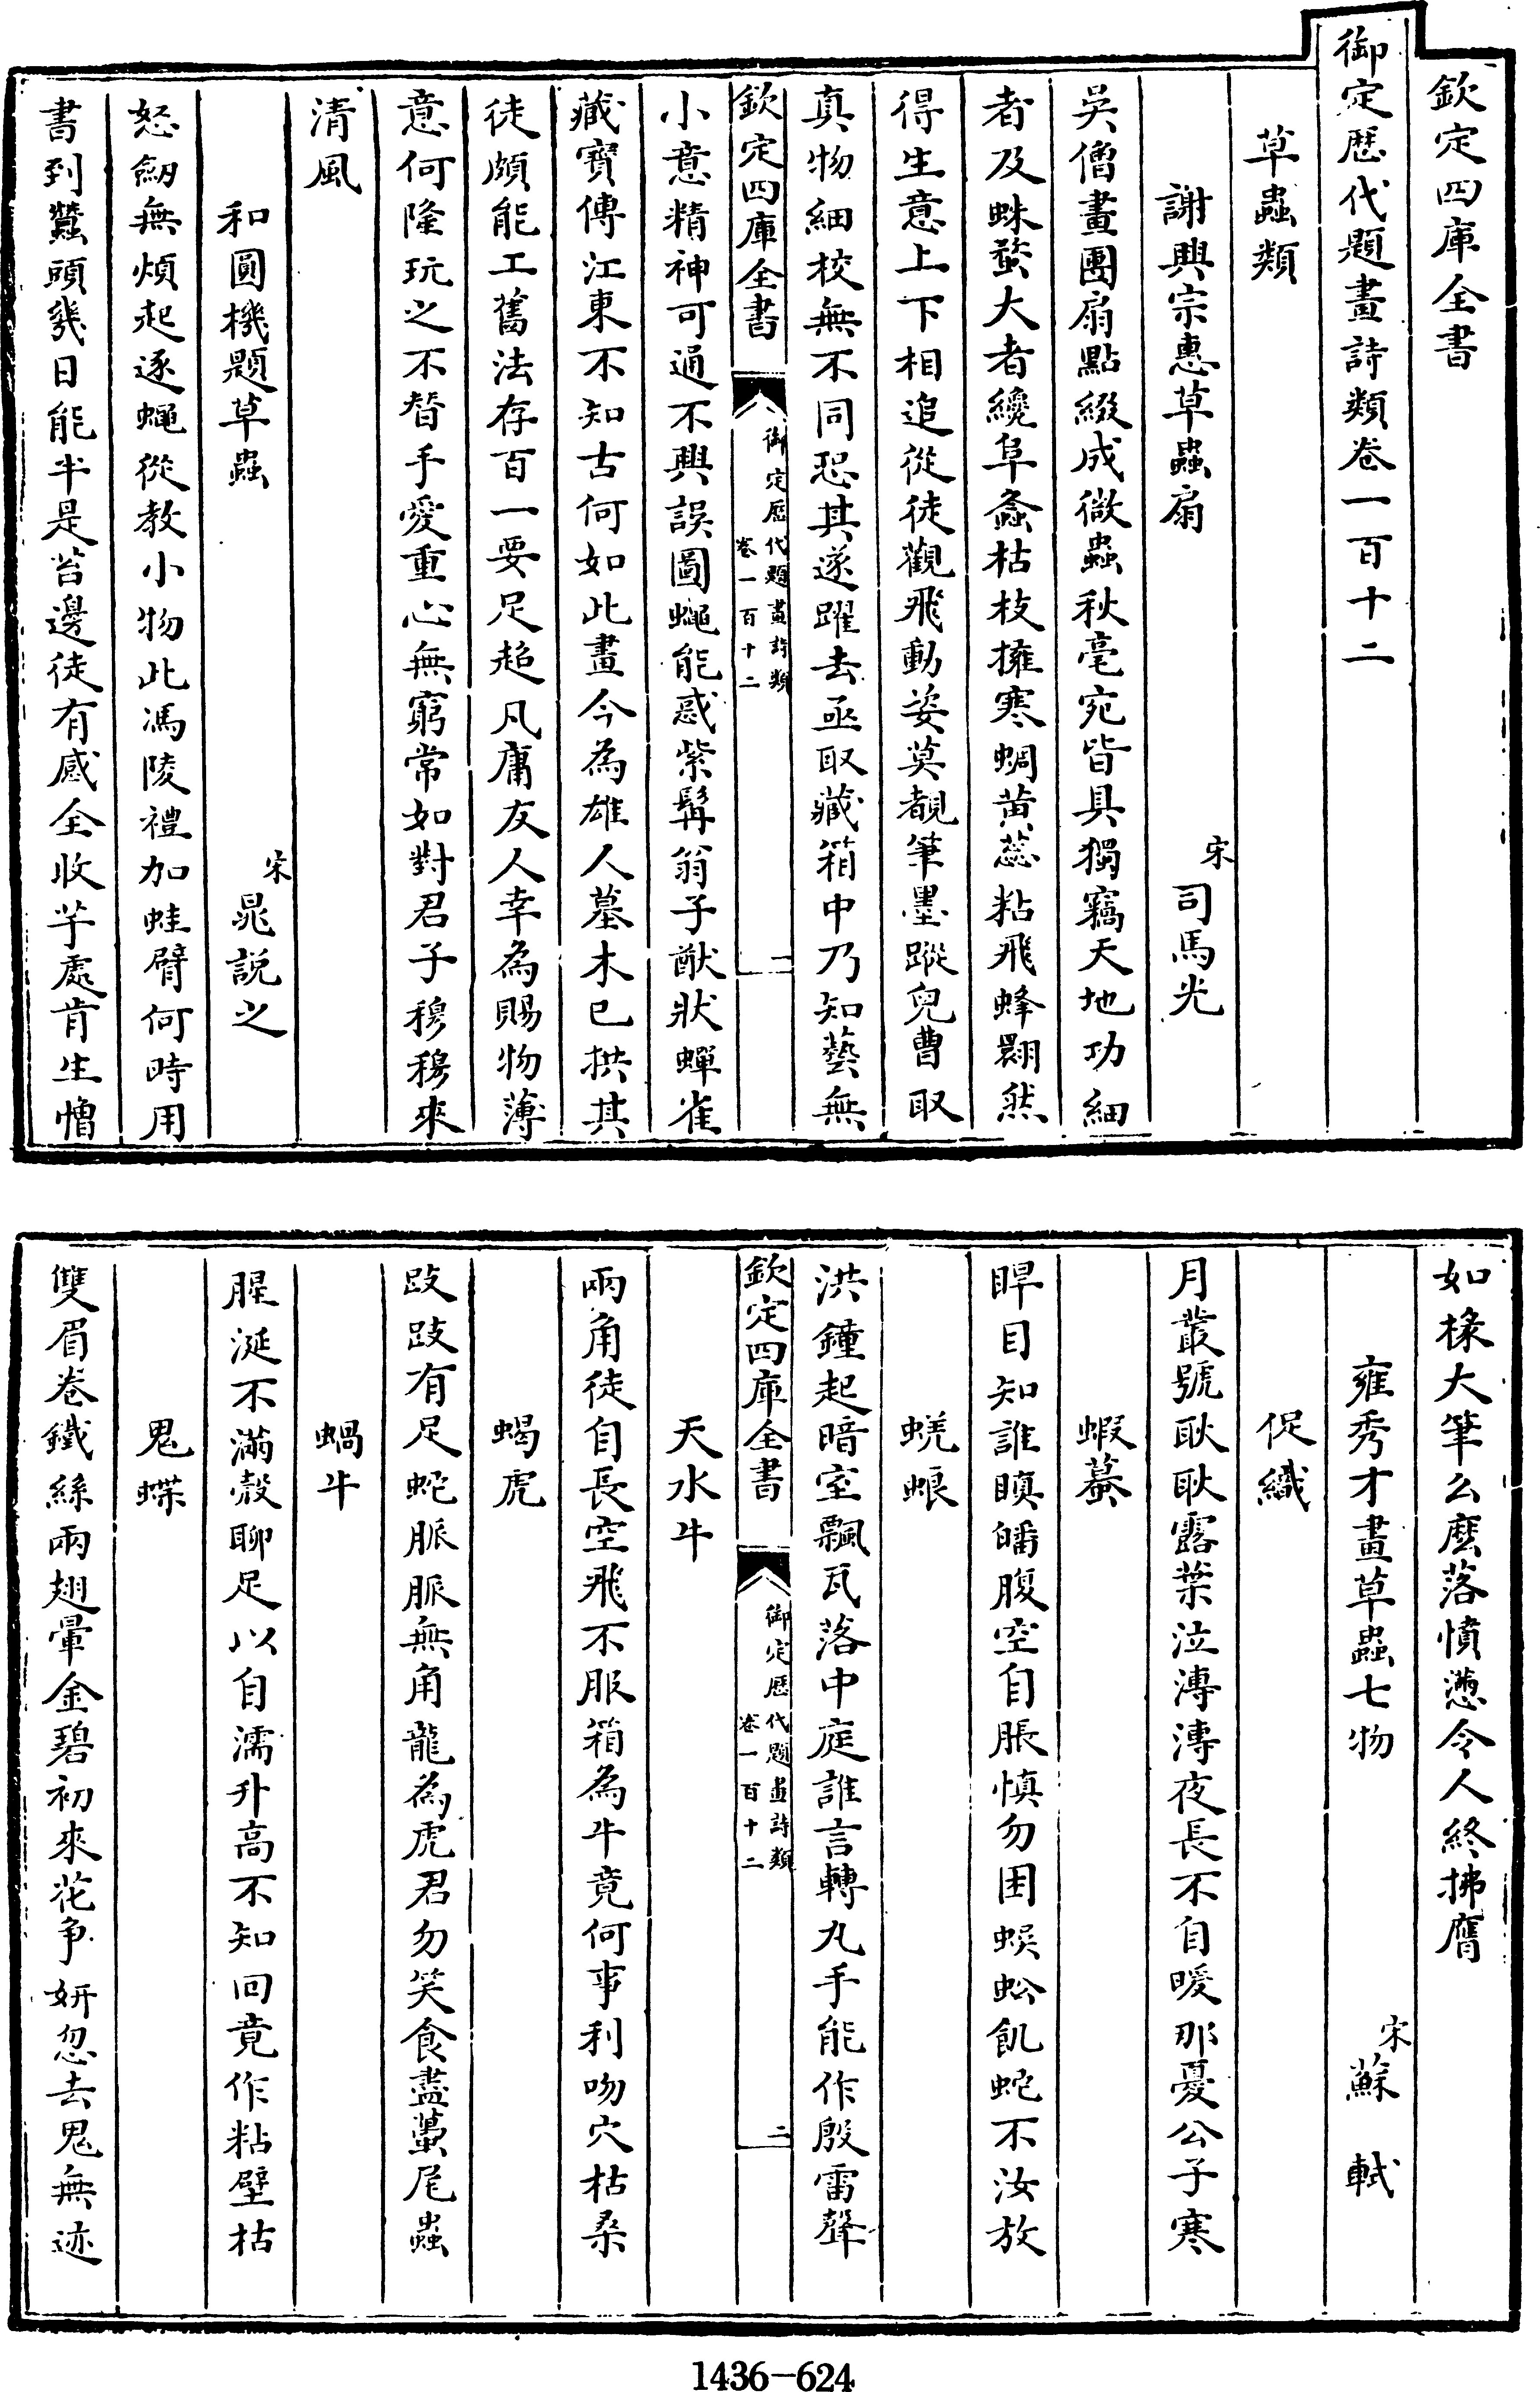 欽定四庫全書
御定歴代題畫詩類卷一百十二
草蟲類
謝興宗惠草蟲扇
宋
司馬光
吳僧畫團扇點綴成微蟲秋毫宛皆具獨竊天地功細
者及蛛蝥大者纔阜螽枯枝擁寒蜩黄蕊粘飛蜂翾然
得生意上下相追從徒觀飛動姿莫覩筆墨蹤兒曹取
真物細校無不同恐其遂躍去亟取藏箱中乃知藝無
欽定四庫全書
御定歴代題畫詩類
卷一百十二
一
小意精神可通不興誤圖蠅能惑紫髯翁子猷狀蟬雀
藏寳傳江東不知古何如此畫今為雄人墓木已拱其
徒頗能工舊法存百一要足超凡庸友人幸為賜物薄
意何隆玩之不替手愛重心無窮常如對君子穆穆來
清風
和圓機題草蟲
宋
晁説之
怒劒無煩起逐蠅從教小物此馮陵禮加蛙臂何時用
書到蠶頭幾日能半是苔邊徒有感全收芋處肯生憎
如椽大筆么麽落憤懣令人終拂膺
雍秀才畫草蟲七物
宋
蘇軾
促織
月叢號耿耿露葉泣漙漙夜長不自暖那憂公子寒
蝦蟇
睅目知誰瞋皤腹空自脹慎勿困蜈蚣飢蛇不汝放
蜣蜋
洪鐘起暗室飄瓦落中庭誰言轉丸手能作殷雷聲
欽定四庫全書
御定歴代題畫詩類
卷一百十二
二
天水牛
兩角徒自長空飛不服箱為牛竟何事利吻穴枯桑
蝎虎
跂跂有足蛇脈脈無角龍為虎君勿笑食盡蠆尾蟲
蝸牛
腥涎不滿殼聊足以自濡升高不知回竟作粘壁枯
鬼蝶
雙眉卷鐵絲兩翅暈金碧初來花争妍忽去鬼無迹
1436-624